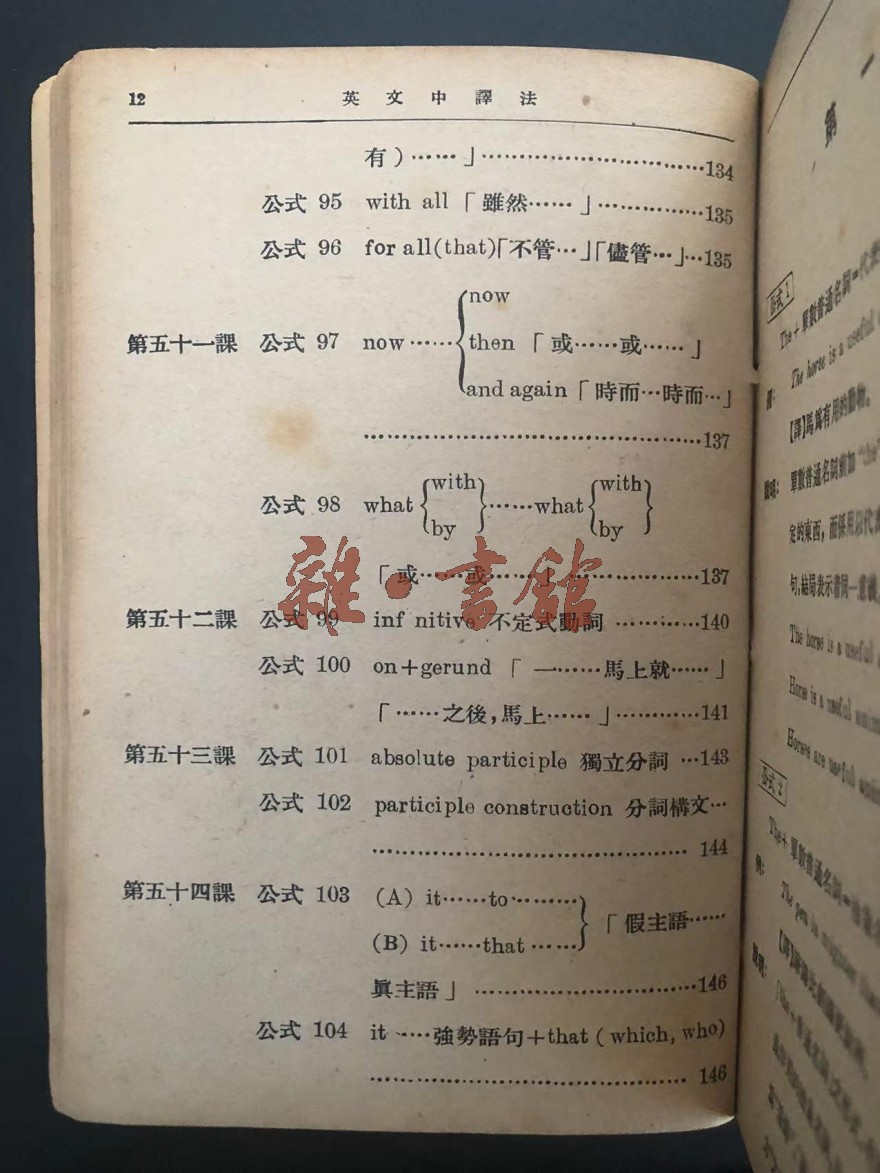 12
英文中譯法
有）……」……………………………134
公式 95 with all「雖然……」………………135
公式 96 for all(that)「不管…」「儘管…」…135
now
第五十一課 公式 97 now……then「或……或……」
and again「時而…時而…」
……………………………………………137
with with
公式 98 what ……what
by by
「或……或……」…………………137
雜·書館
第五十二課 公式 99 inf nitive 不定式動詞 …………140
公式 100 on+gerund 「一……馬上就……」
「……之後，馬上……」…………141
第五十三課 公式 101 absolute participle 獨立分詞 …143
公式 102 participle construction 分詞構文…
………………………………………… 144
第五十四課 公式 103 (A) it……to………
「假主語……
(B) it……that ……
眞主語」……………………………146
公式 104 it ……強勢語句+that（which, who）
………………………………………… 146
第一
公式 1
The+單數普通名詞=代表
例： The horse is a useful
【譯】馬爲有用的動物。
說明： 單數普通名詞前加"the"
定的東西，而係用以代表
句，結局表示着同一意義，
The horse is a useful
Horse is a useful
Horses are useful
公式 2
The+單數普通名詞=
例： The pen is mightier than
說明：